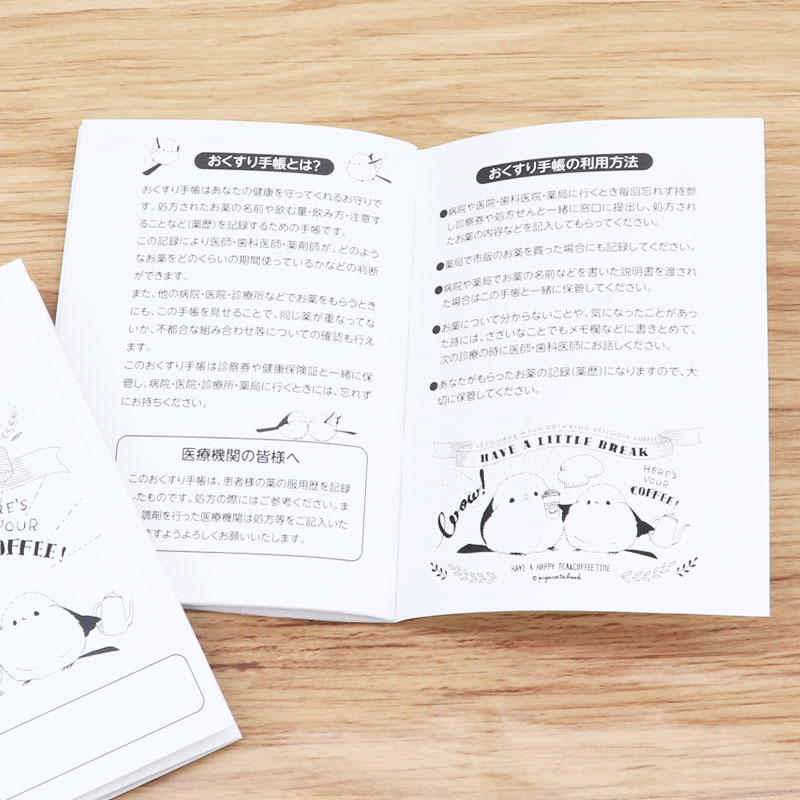 おくすり手帳とは?
おくすり手帳はあなたの健康を守ってくれるお守りで
す。処方されたお薬の名前や飲む量・飲み方・注意す
ることなど(薬歴)を記録するための手帳です。
この記録により医師・歯科医師・薬剤師が、どのよう
なお薬をどのくらいの期間使っているかなどの判断
ができます。
また、他の病院・医院・診療所などでお薬をもらうとき
にも、この手帳を見せることで、同じ薬が重なってな
いか、不都合な組み合わせ等についての確認も行え
ます。
このおくすり手帳は診察券や健康保険証と一緒に保
管し、病院・医院・診療所・薬局に行くときには、忘れず
にお持ちください。
医療機関の皆様へ
このおくすり手帳は、患者様の薬の服用歴を記録
したものです。処方の際にはご参考ください。ま
調剤を行った医療機関は処方等をご記入いた
ますようよろしくお願いいたします。
おくすり手帳の利用方法
●病院や医院・歯科医院・薬局に行くとき毎回忘れず持参
し診察券や処方せんと一緒に窓口に提出し、処方され
たお薬の内容などを記入してもらってください。
●薬局で市販のお薬を買った場合にも記録してください。
●病院や薬局でお薬の名前などを書いた説明書を渡され
た場合はこの手帳と一緒に保管してください。
●お薬について分からないことや、気になったことがあっ
た時には、ささいなことでもメモ欄などに書きとめて、
次の診療の時に医師・歯科医師にお話しください。
●あなたがもらったお薬の記録(薬歴)になりますので、大
切に保管してください。
LET'S HAVE A FUN DRINKING DELICIOUS COFFEE
HAVE A LITTLE BREAK
Wow!
HERE'S
YOUR
COFFEE!
HAVE A HAPPY TEA&COFFEE TIME
©piyonotabook
HERE'S
YOUR
COFFEE!